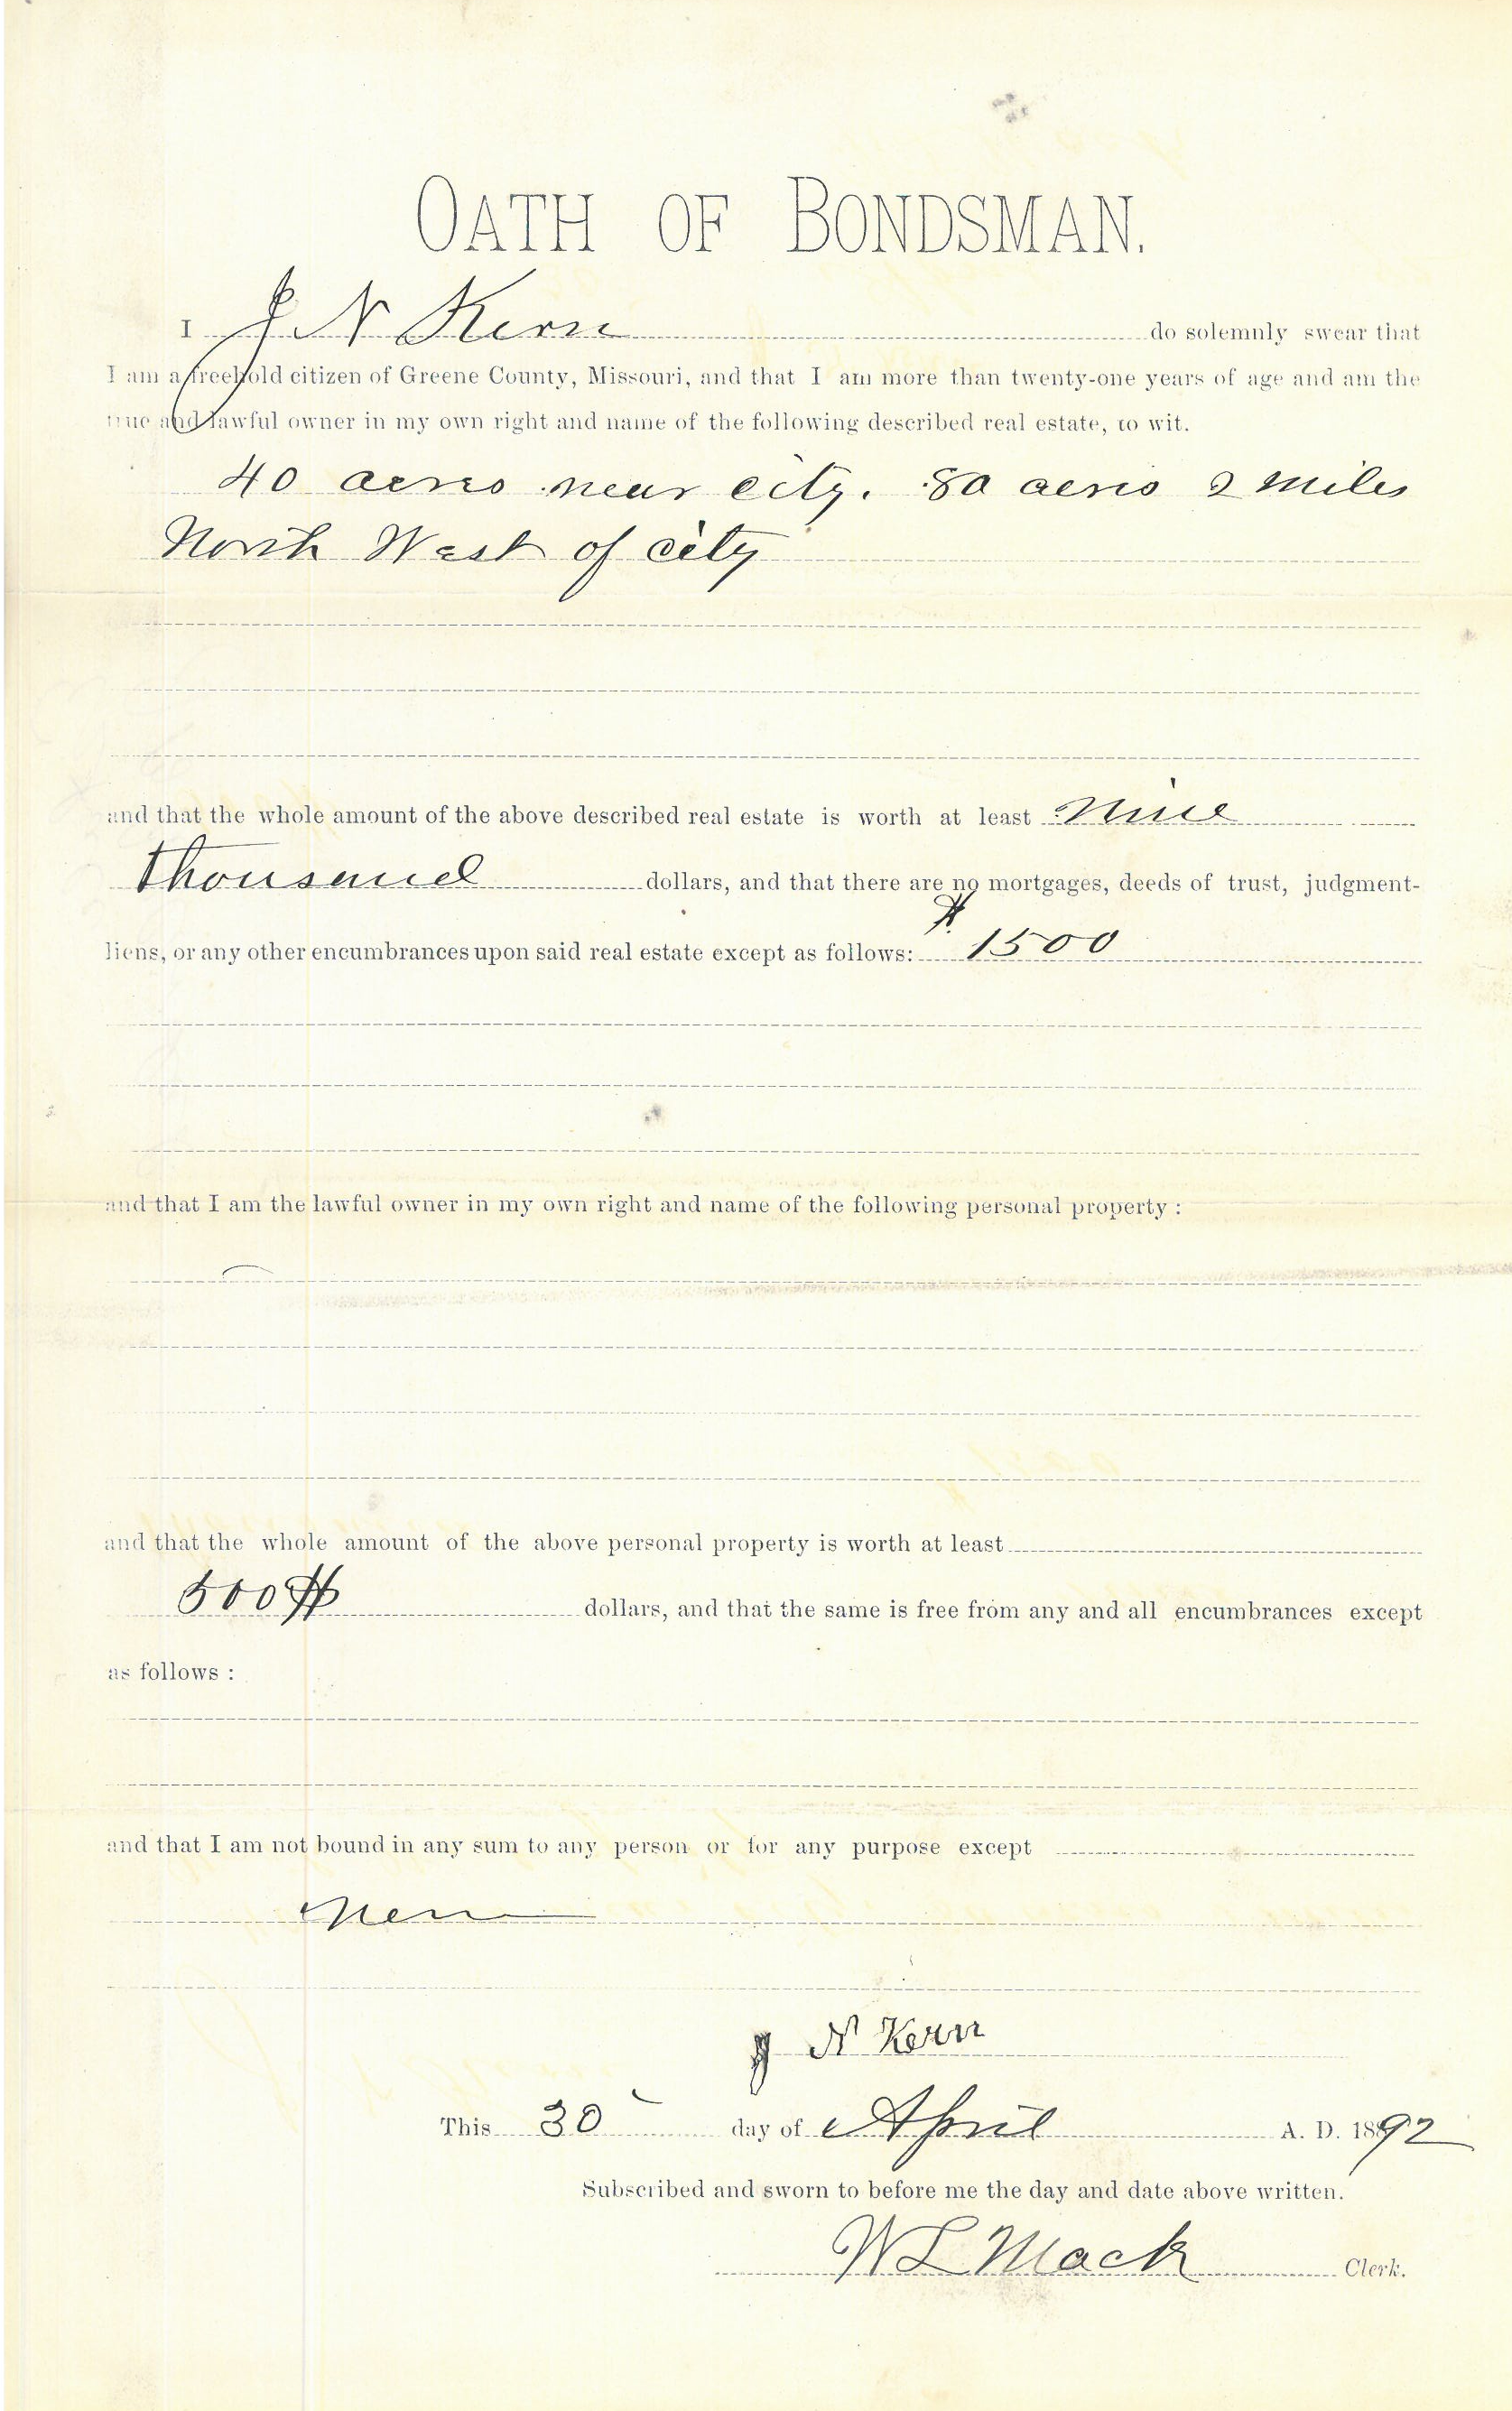 OATH OF BONDSMAN.
I J N Kern do solemnly swear that
I am a freehold citizen of Greene County, Missouri, and that I am more than twenty-one years of age and am the
true and lawful owner in my own right and name of the following described real estate, to wit.
40 acres near city. 80 acres 2 miles
North West of city
and that the whole amount of the above described real estate is worth at least Nine
thousand dollars, and that there are no mortgages, deeds of trust, judgment-
liens, or any other encumbrances upon said real estate except as follows: $1500
and that I am the lawful owner in my own right and name of the following personal property :
and that the whole amount of the above personal property is worth at least
500 $ dollars, and that the same is free from any and all encumbrances except
as follows :
and that I am not bound in any sum to any person or for any purpose except
J N Kern
This 30 day of April A. D. 1892
Subscribed and sworn to before me the day and date above written.
W L Mack Clerk.